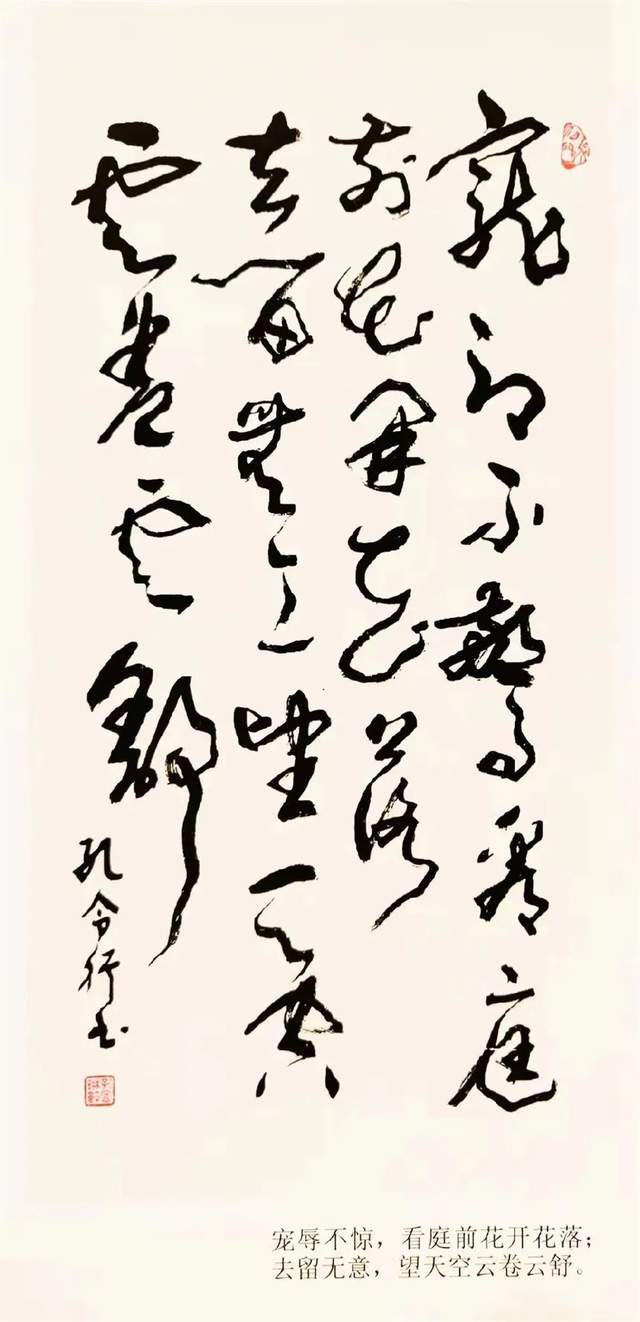 寵辱不驚看庭
前花開花落
去留無意望天空
雲卷雲舒
孔令行書
宠辱不惊，看庭前花开花落；
去留无意，望天空云卷云舒。